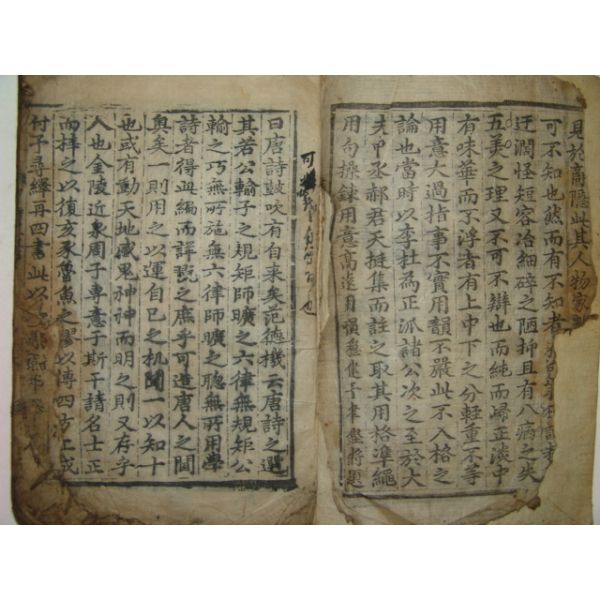 具於商隱此其人物家
可不知也然而有不知者
迂濶怪短容冶細碎之陋抑且有八病之失
五美之理又不可不辯也而純而歸正淡中
有味華而不浮者有上中下之分輕重不等
用意大過指事不實用韻不嚴此不入格之
論也當時以李杜為正派諸公次之至於大
夫甲丞郝君天挺集而註之取其用格準繩
用句操鍊用意高遠用韻穩健
曰唐詩鼓吹有自來矣范德機云唐詩之選
其若公輸子之規矩師曠之六律無規矩公
輸之巧無所施無六律師曠之聰無所用學
詩者得此編而詳覽之庶乎可造唐人之閫
奧矣一則用之以運自己之机聞一以知十
也或有動天地感鬼神神而明之則又存乎
人也金陵近泉周子專意于斯干請名士正
而梓之以復亥豕魯魚之謬以傳四方工成
付予尋繹再四書此以